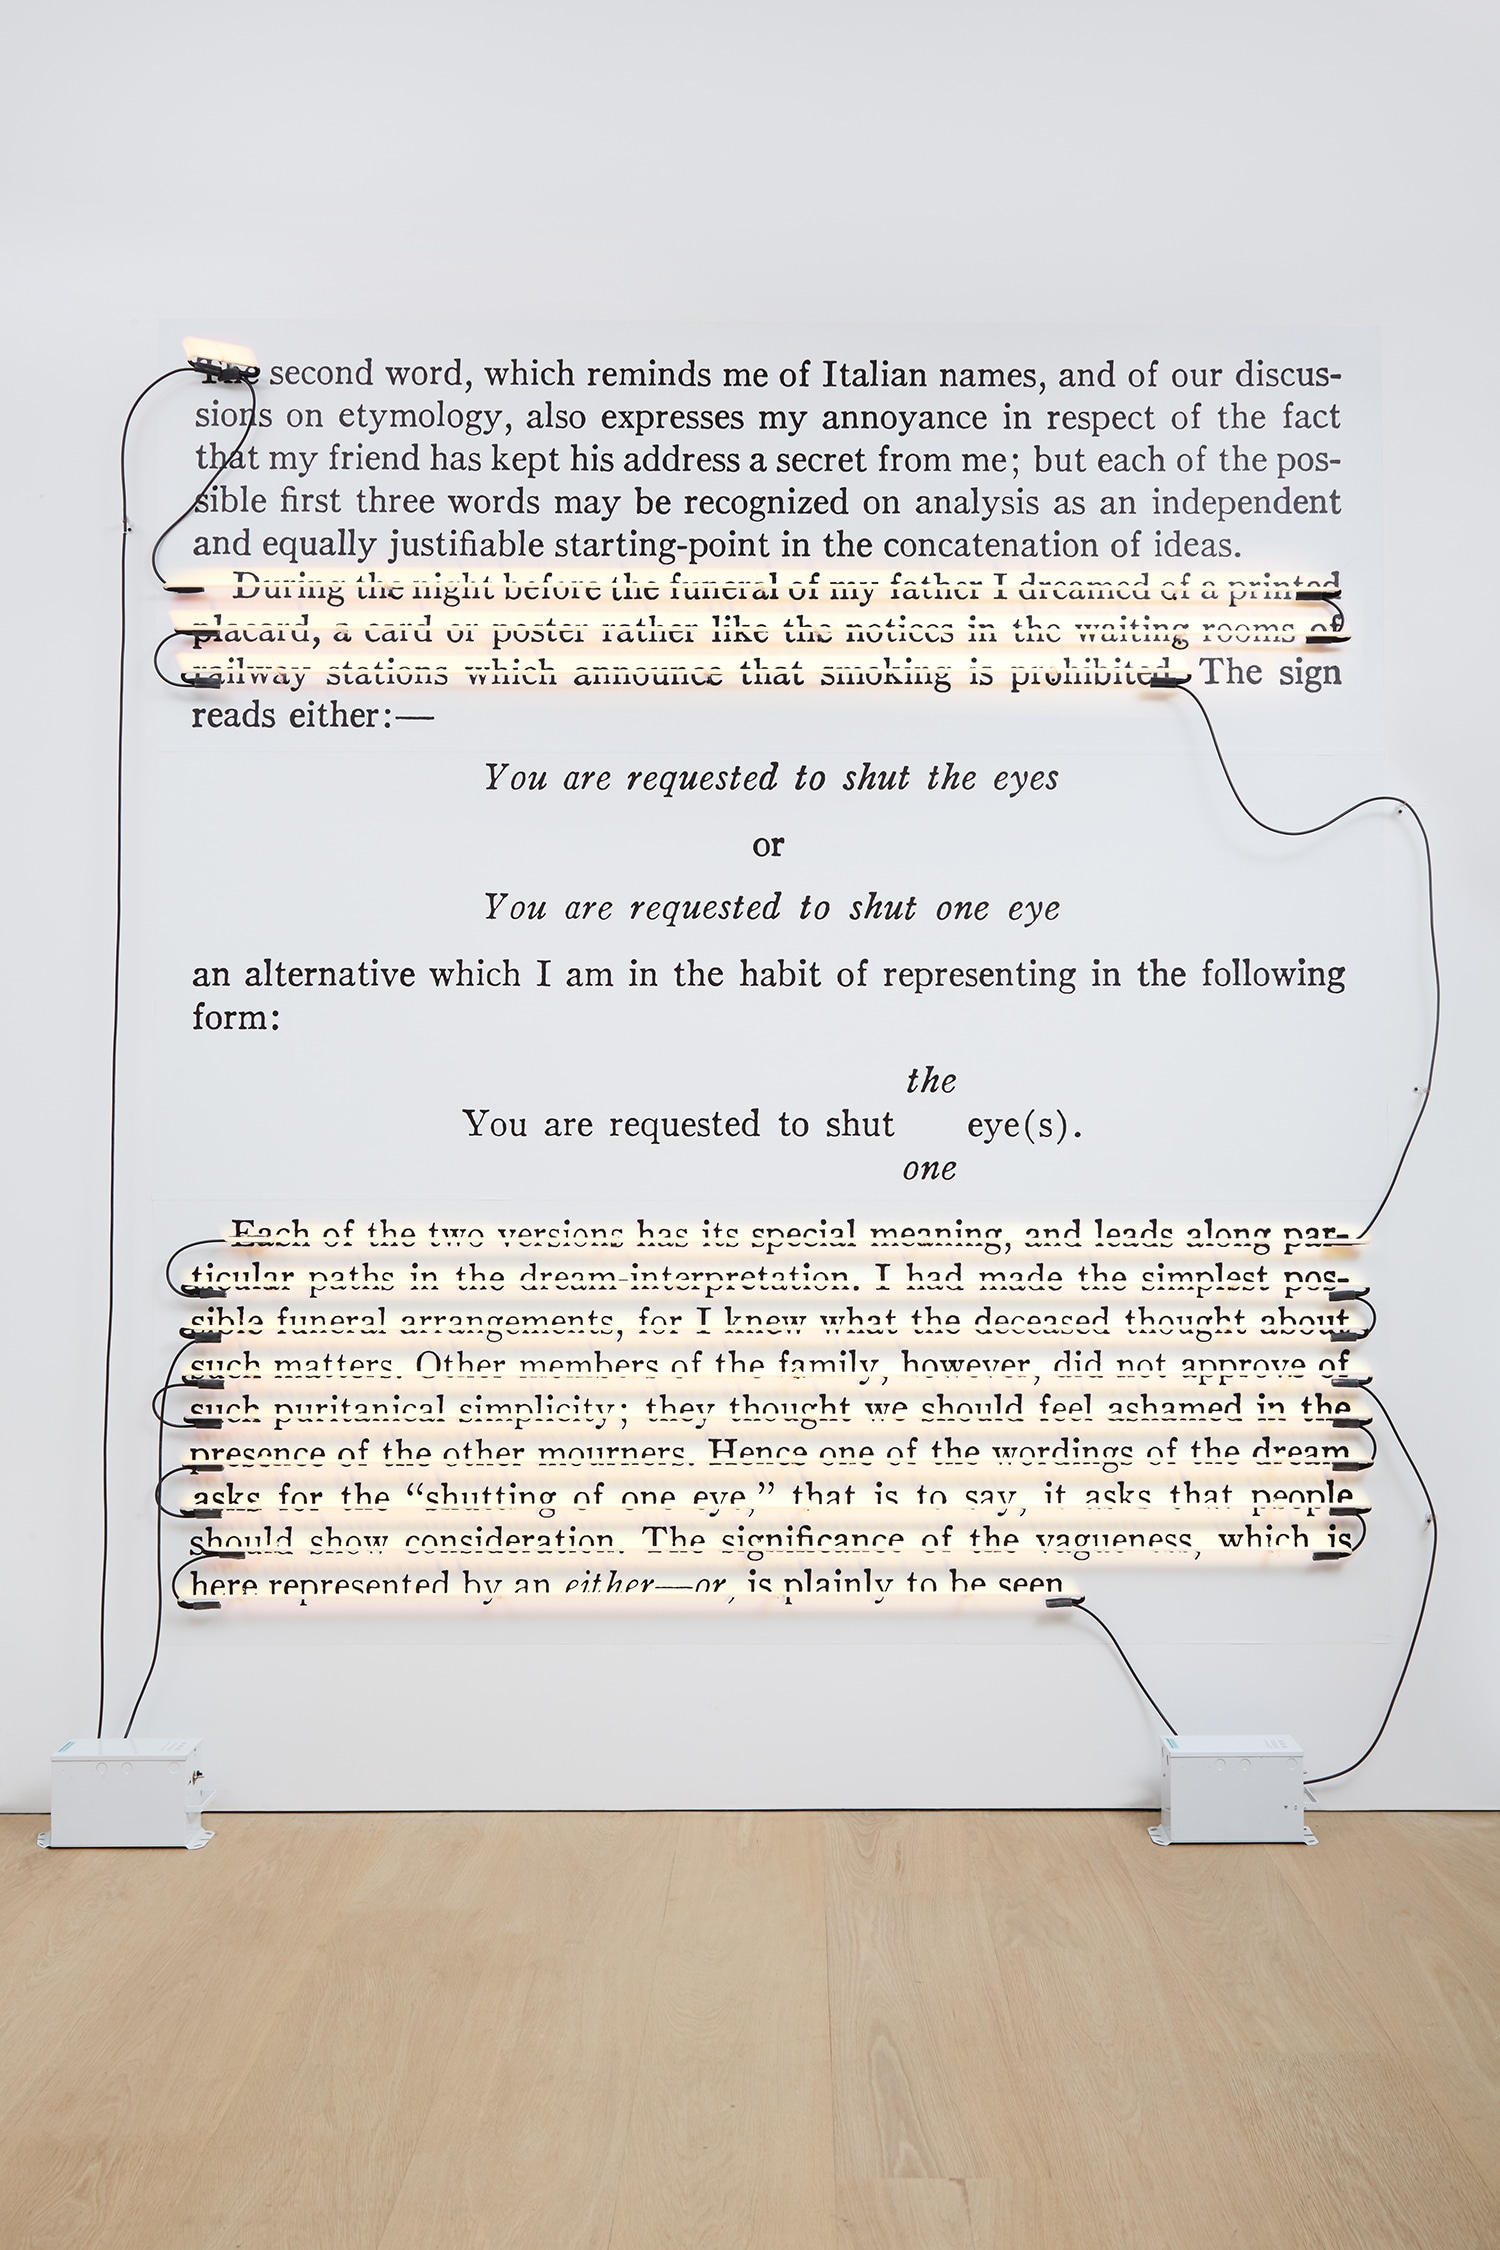 The second word, which reminds me of Italian names, and of our discus-
sions on etymology, also expresses my annoyance in respect of the fact
that my friend has kept his address a secret from me; but each of the pos-
sible first three words may be recognized on analysis as an independent
and equally justifiable starting-point in the concatenation of ideas.
During the night before the funeral of my father I dreamed of a printed
placard, a card or poster rather like the notices in the waiting rooms of
railway stations which announce that smoking is prohibited. The sign
reads either:—
You are requested to shut the eyes
or
You are requested to shut one eye
an alternative which I am in the habit of representing in the following
form:
the
You are requested to shut eye(s).
one
Each of the two versions has its special meaning, and leads along par-
ticular paths in the dream-interpretation. I had made the simplest pos-
sible funeral arrangements, for I knew what the deceased thought about
such matters. Other members of the family, however, did not approve of
such puritanical simplicity; they thought we should feel ashamed in the
presence of the other mourners. Hence one of the wordings of the dream
asks for the “shutting of one eye,” that is to say, it asks that people
should show consideration. The significance of the vagueness, which is
here represented by an either—or, is plainly to be seen